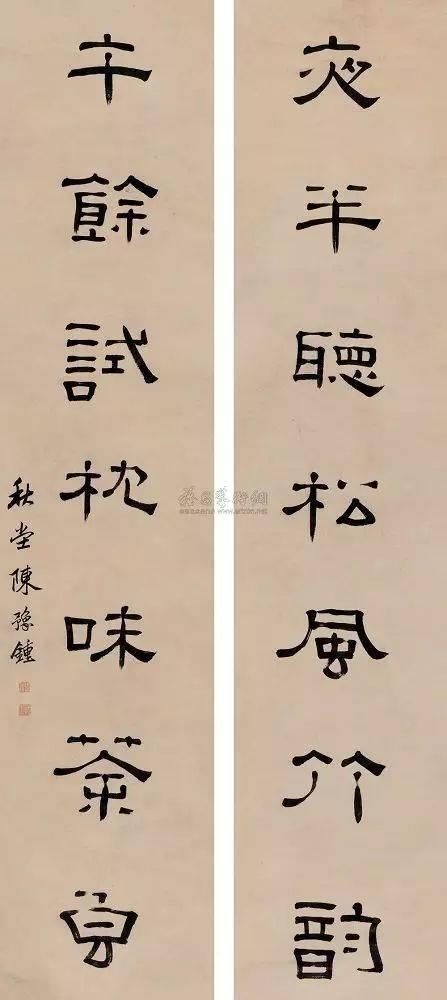 夜半聽松風竹韻
午餘試枕味茶
秋堂陳豫鍾